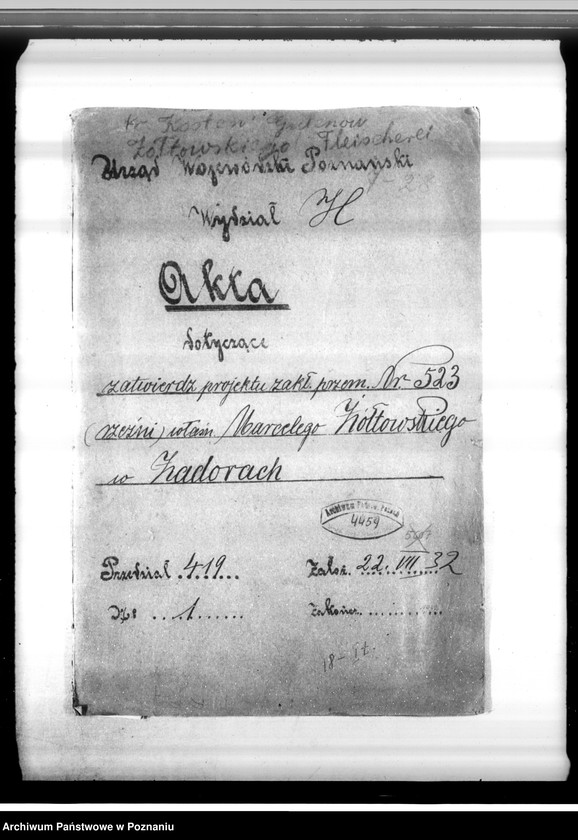 kr. Kosten
Żółtowskiego Fleischerei
Urząd Wojewódzki Poznański
Wydział H
Akta
dotyczące
zatwierdz projektu zakł. przem. Nr 523
(rzeźni) własn Marcelego Żółtowskiego
w Zadorach
Archiwum Państw. Poznań
4459
Przedział 419
Założ. 22. VIII 32
Nr 1
Zakończ.
18 -
Archiwum Państwowe w Poznaniu